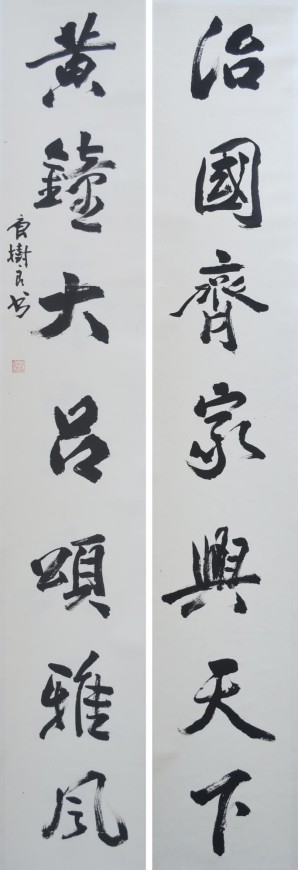 治國齊家興天下
黄鐘大呂頌雅風
樹书